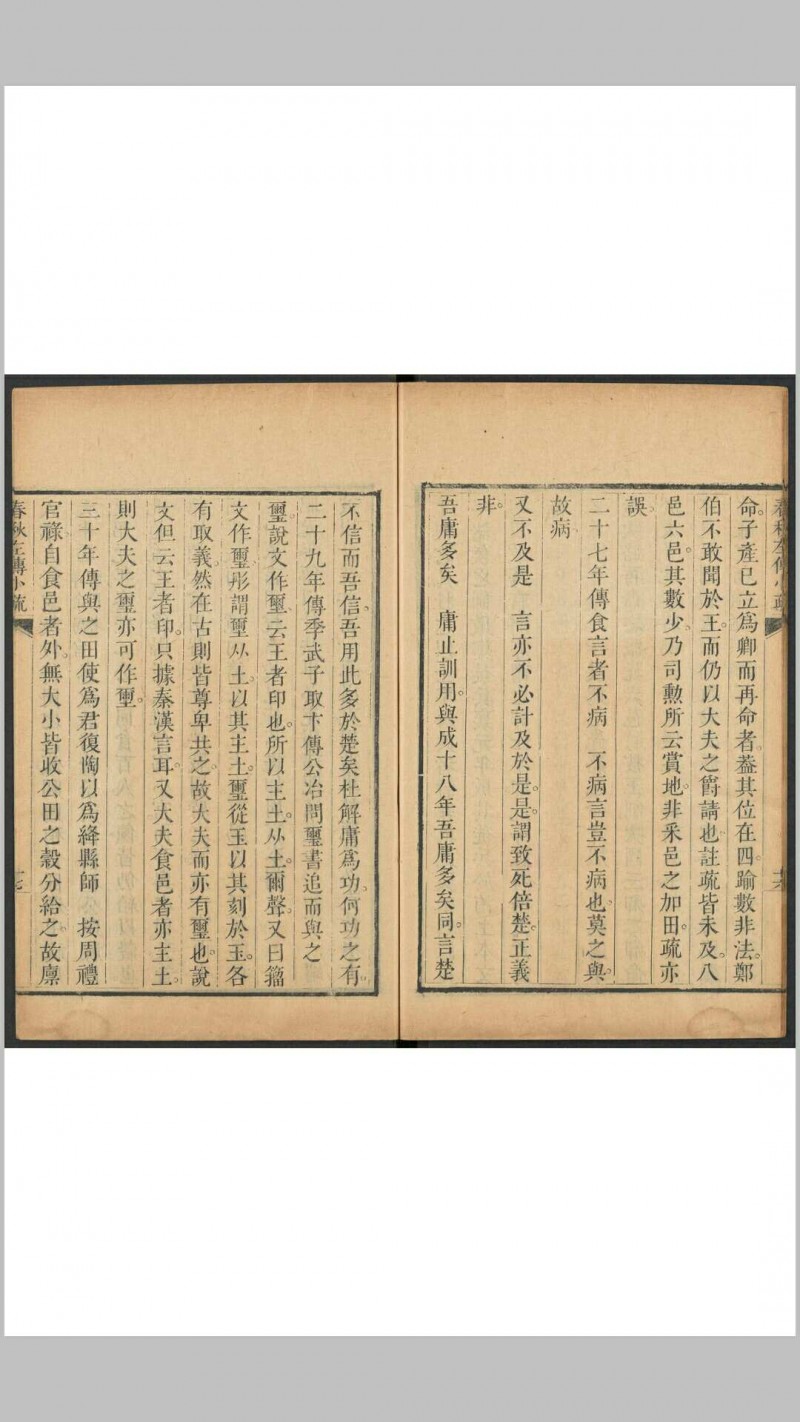 命子產已立爲卿而再命者葢其位在四踰數非法鄭
伯不敢聞於王而仍以大夫之爵請也註疏皆未及八
邑六邑其數少乃司勲所云賞地非釆邑之加田疏亦
誤
二十七年傳食言者不病　不病言豈不病也莫之與
故病
又不及是　言亦不必計及於是是謂致死倍楚正義
非
吾庸多矣　庸止訓用與成十八年吾庸多矣同言楚
春秋左傳小疏
不信而吾信吾用此多於楚矣杜解庸爲功何功之有
二十九年傳季武子取卞傳公冶問璽書追而與之
璽說文作壐云王者印也所以主土从土爾聲又曰籀
文作璽彤謂壐从土以其主土璽從玉以其刻於玉各
有取義然在古則皆尊卑共之故大夫而亦有璽也說
文但云王者印只據秦漢言耳又大夫食邑者亦主土
則大夫之璽亦可作壐
三十年傳與之田使爲君復陶以爲絳縣師　按周禮
官祿自食邑者外無大小皆收公田之穀分給之故廪
春秋左傳小疏